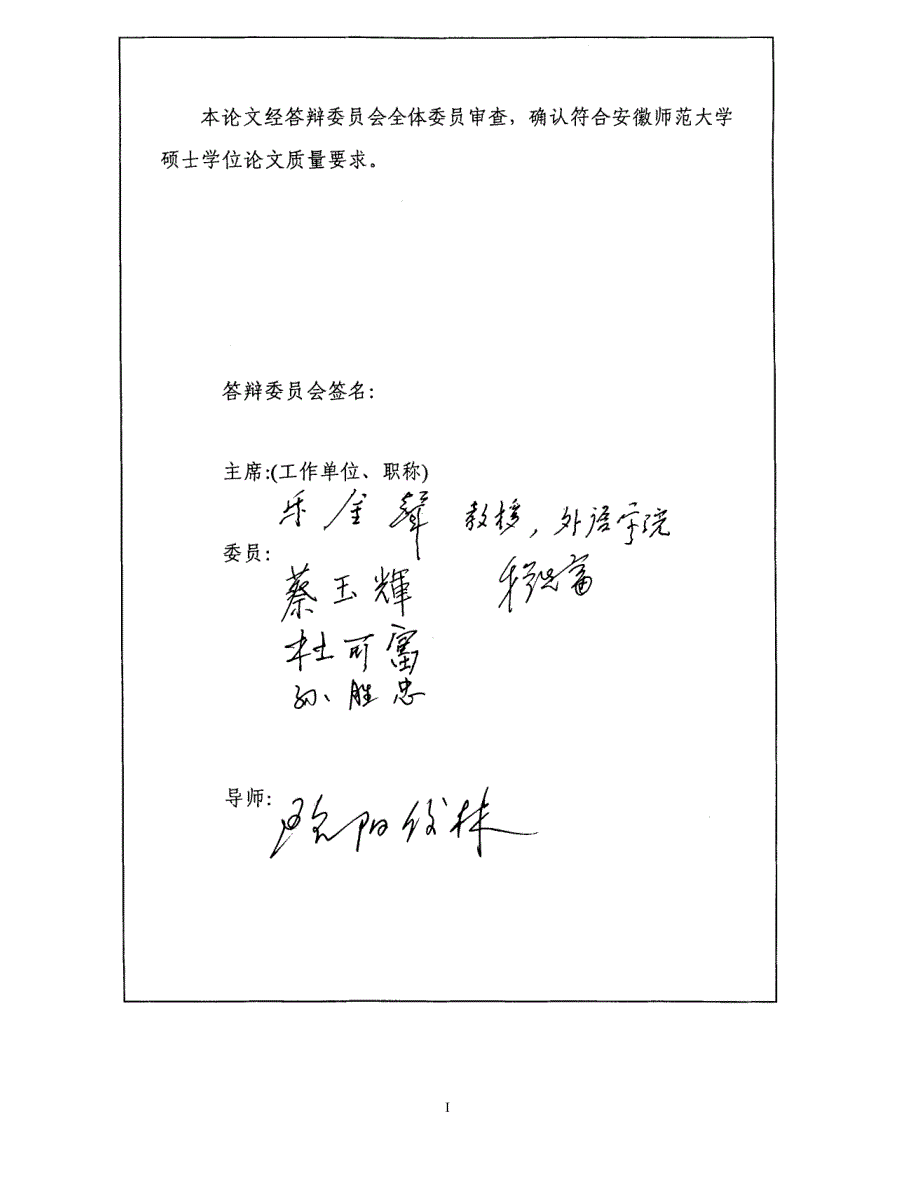 本论文经答辩委员会全体委员审查，确认符合安徽师范大学
硕士学位论文质量要求。
答辩委员会签名：
主席:(工作单位、职称)
乐金聲 教授，外语学院
委员：
蔡玉輝
杜可富
孙胜忠
导师：
欧阳俊林
I